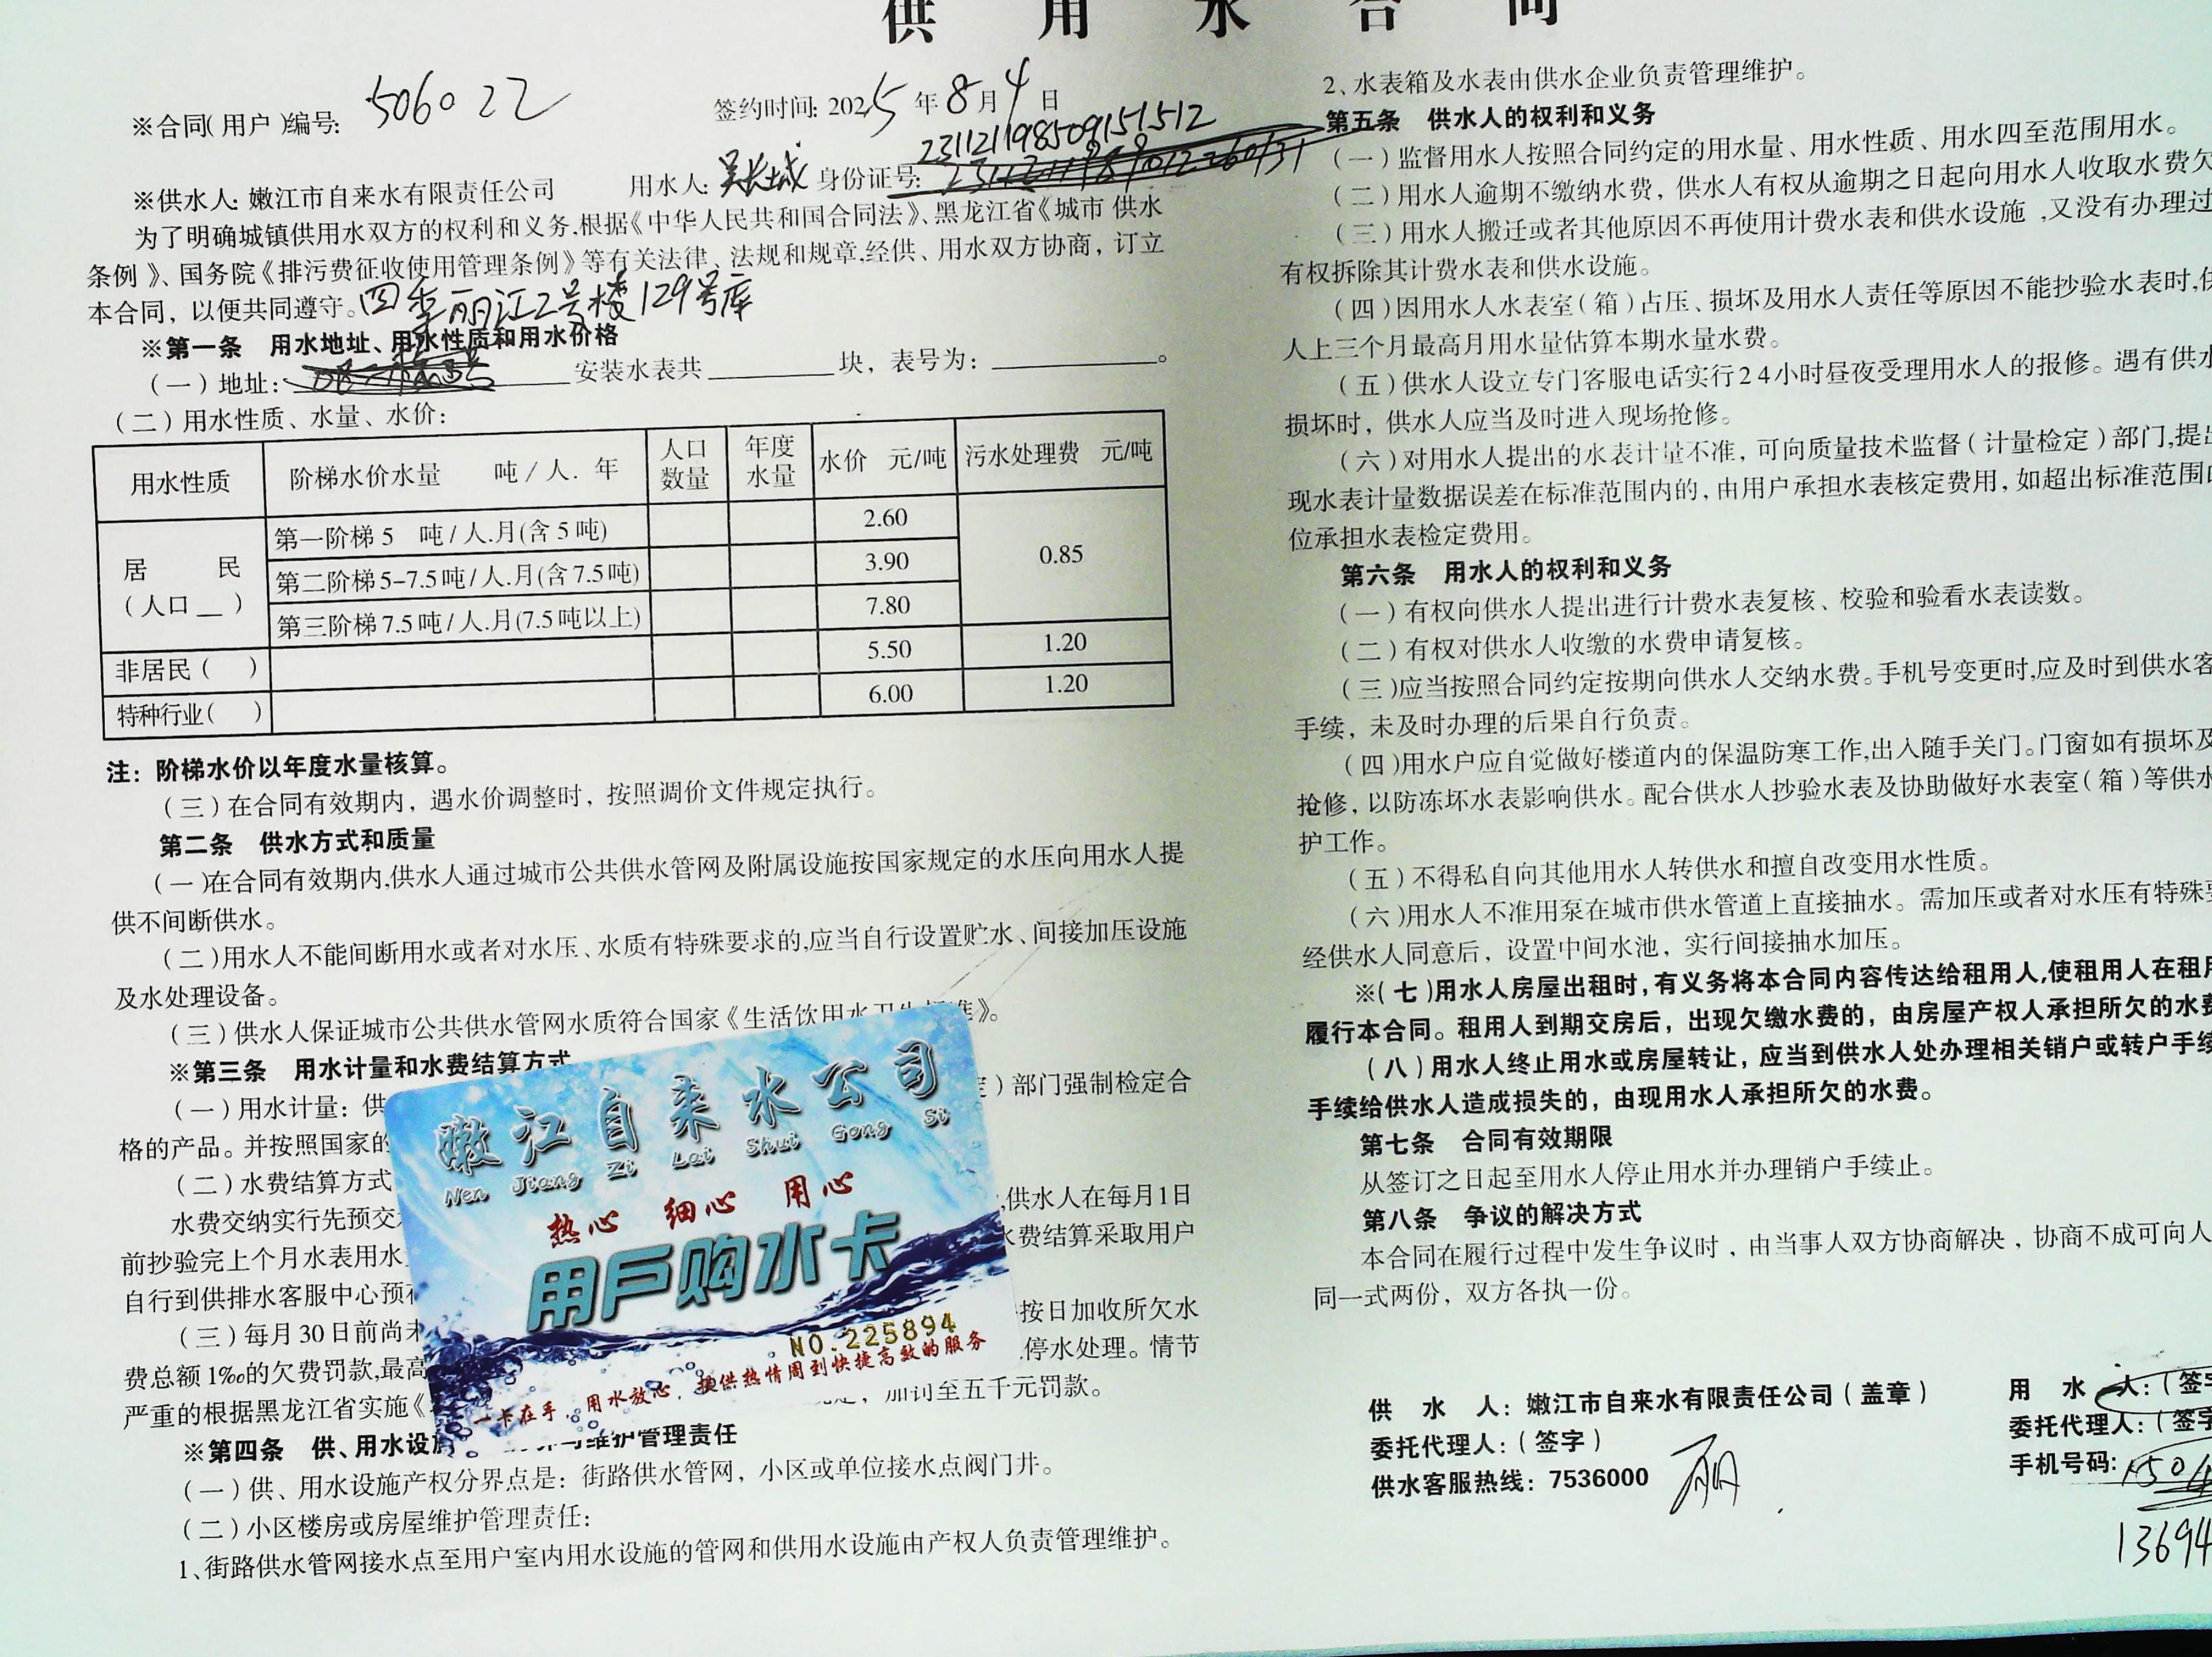 供 用 水 合 同
※合同(用户)编号: 506022
签约时间: 2025年8月4日
231121198509151512
※供水人: 嫩江市自来水有限责任公司 用水人: 吴长城 身份证号:
为了明确城镇供用水双方的权利和义务,根据《中华人民共和国合同法》、黑龙江省《城市 供水
条例》、国务院《排污费征收使用管理条例》等有关法律、法规和规章,经供、用水双方协商，订立
本合同，以便共同遵守。四季丽江2号楼129号库
※第一条 用水地址、用水性质和用水价格
(一)地址: 安装水表共 块，表号为: 。
(二)用水性质、水量、水价:
用水性质 阶梯水价水量 吨/人.年 人口数量 年度水量 水价 元/吨 污水处理费 元/吨
居 民 (人口__)
第一阶梯 5 吨/人.月(含5吨) 2.60 0.85
第二阶梯 5-7.5吨/人.月(含7.5吨) 3.90
第三阶梯 7.5吨/人.月(7.5吨以上) 7.80
非居民( ) 5.50 1.20
特种行业( ) 6.00 1.20
注: 阶梯水价以年度水量核算。
(三)在合同有效期内，遇水价调整时，按照调价文件规定执行。
第二条 供水方式和质量
(一)在合同有效期内,供水人通过城市公共供水管网及附属设施按国家规定的水压向用水人提
供不间断供水。
(二)用水人不能间断用水或者对水压、水质有特殊要求的,应当自行设置贮水、间接加压设施
及水处理设备。
(三)供水人保证城市公共供水管网水质符合国家《生活饮用水卫生标准》。
※第三条 用水计量和水费结算方式
(一)用水计量: 供 )部门强制检定合
格的产品。并按照国家的
(二)水费结算方式
水费交纳实行先预交 ,供水人在每月1日
前抄验完上个月水表用水 水费结算采取用户
自行到供排水客服中心预存
(三)每月30日前尚未 按日加收所欠水
费总额1‰的欠费罚款,最高 停水处理。情节
严重的根据黑龙江省实施《 ，加罚至五千元罚款。
嫩江自来水公司
Nen Jiang Zi Lai Shui Gong Si
热心 细心 用心
用户购水卡
NO.225894
一卡在手，用水放心，提供热情周到快捷高效的服务
※第四条 供、用水设施 与维护管理责任
(一)供、用水设施产权分界点是: 街路供水管网，小区或单位接水点阀门井。
(二)小区楼房或房屋维护管理责任:
1、街路供水管网接水点至用户室内用水设施的管网和供用水设施由产权人负责管理维护。
2、水表箱及水表由供水企业负责管理维护。
第五条 供水人的权利和义务
(一)监督用水人按照合同约定的用水量、用水性质、用水四至范围用水。
(二)用水人逾期不缴纳水费，供水人有权从逾期之日起向用水人收取水费欠
(三)用水人搬迁或者其他原因不再使用计费水表和供水设施,又没有办理过
有权拆除其计费水表和供水设施。
(四)因用水人水表室(箱)占压、损坏及用水人责任等原因不能抄验水表时,供
人上三个月最高月用水量估算本期水量水费。
(五)供水人设立专门客服电话实行24小时昼夜受理用水人的报修。遇有供水
损坏时，供水人应当及时进入现场抢修。
(六)对用水人提出的水表计量不准，可向质量技术监督(计量检定)部门,提出
现水表计量数据误差在标准范围内的，由用户承担水表核定费用，如超出标准范围
位承担水表检定费用。
第六条 用水人的权利和义务
(一)有权向供水人提出进行计费水表复核、校验和验看水表读数。
(二)有权对供水人收缴的水费申请复核。
(三)应当按照合同约定按期向供水人交纳水费。手机号变更时,应及时到供水客
手续，未及时办理的后果自行负责。
(四)用水户应自觉做好楼道内的保温防寒工作,出入随手关门。门窗如有损坏及
抢修，以防冻坏水表影响供水。配合供水人抄验水表及协助做好水表室(箱)等供水
护工作。
(五)不得私自向其他用水人转供水和擅自改变用水性质。
(六)用水人不准用泵在城市供水管道上直接抽水。需加压或者对水压有特殊要
经供水人同意后，设置中间水池，实行间接抽水加压。
※(七)用水人房屋出租时,有义务将本合同内容传达给租用人,使租用人在租用
履行本合同。租用人到期交房后，出现欠缴水费的，由房屋产权人承担所欠的水费
(八)用水人终止用水或房屋转让，应当到供水人处办理相关销户或转户手续
手续给供水人造成损失的，由现用水人承担所欠的水费。
第七条 合同有效期限
从签订之日起至用水人停止用水并办理销户手续止。
第八条 争议的解决方式
本合同在履行过程中发生争议时，由当事人双方协商解决，协商不成可向人
同一式两份，双方各执一份。
供 水 人: 嫩江市自来水有限责任公司(盖章)
委托代理人:(签字)
供水客服热线: 7536000
用 水 人:(签字
委托代理人:(签字
手机号码: 1504
13694